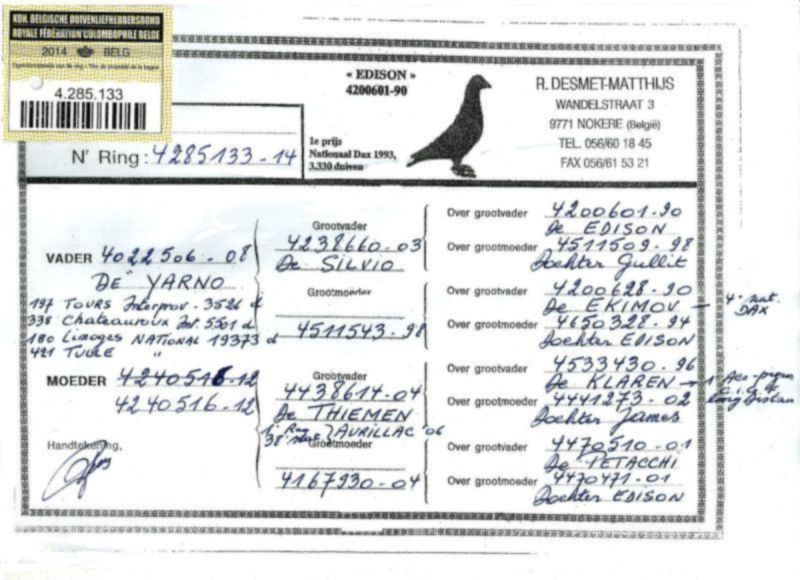 KON. BELGISCHE DUIVENLIEFHEBBERSBOND
ROYALE FÉDÉRATION COLOMBOPHILE BELGE
2014 BELG
4.285.133
Nr Ring : 4285133-14
« EDISON »
4200601-90
1e prijs
Nationaal Dax 1993,
3.330 duiven
R. DESMET-MATTHIJS
WANDELSTRAAT 3
9771 NOKERE (België)
TEL. 056/60 18 45
FAX 056/61 53 21
VADER 4022506-08
DE YARNO
197 TOURS Interprov. 3526 d
338 Chateauroux Int. 5501 d
180 Limoges NATIONAL 19373 d
421 TULLE "
MOEDER 4240516-12
4240516-12
Handtekening,
Grootvader
4238660-03
De SILVIO
Grootmoeder
4511543-98
Grootvader
4438614-04
De THIEMEN
AURILLAC '06
38
Grootmoeder
4167930-04
Over grootvader 4200601-90
De EDISON
Over grootmoeder 4511509-98
Dochter Gullit
Over grootvader 4200628-90
De EKIMOV - 4e nat. DAX
Over grootmoeder 4650328-94
Dochter EDISON
Over grootvader 4533430-96
De KLAREN
Over grootmoeder 4441273-02
Dochter James
Over grootvader 4470510-01
De PETACCHI
Over grootmoeder 4470471-01
Dochter EDISON